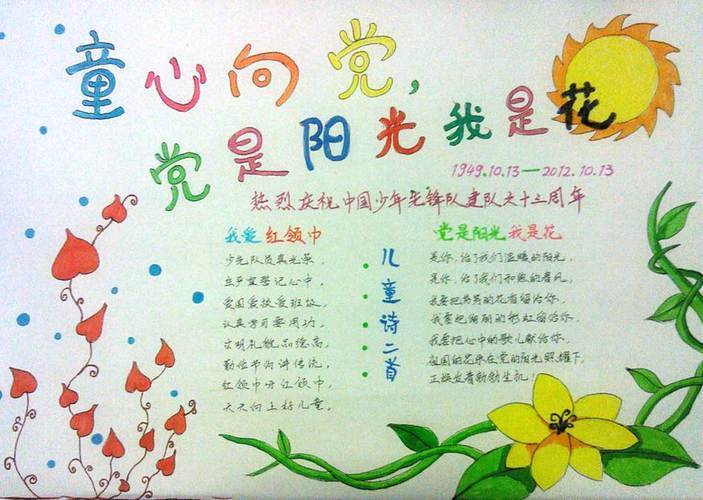 童心向党，
党是阳光我是花
1949.10.13—2012.10.13
热烈庆祝中国少年先锋队建队六十三周年
我爱红领巾
少先队员真光荣，
庄严宣誓记心中，
爱国爱校爱班级，
认真学习要用功，
文明礼貌品德高，
勤俭节约讲传统，
红领巾
天天向上好儿童。
儿童诗二首
党是阳光我是花
是你，给了我们温暖的阳光，
是你，给了我们和煦的春风，
我要把芬芳的花香留给你，
我要把绚丽的彩虹留给你，
我要把心中的歌儿献给你，
祖国的花朵在党的阳光照耀下，
正绽放着勃勃生机！